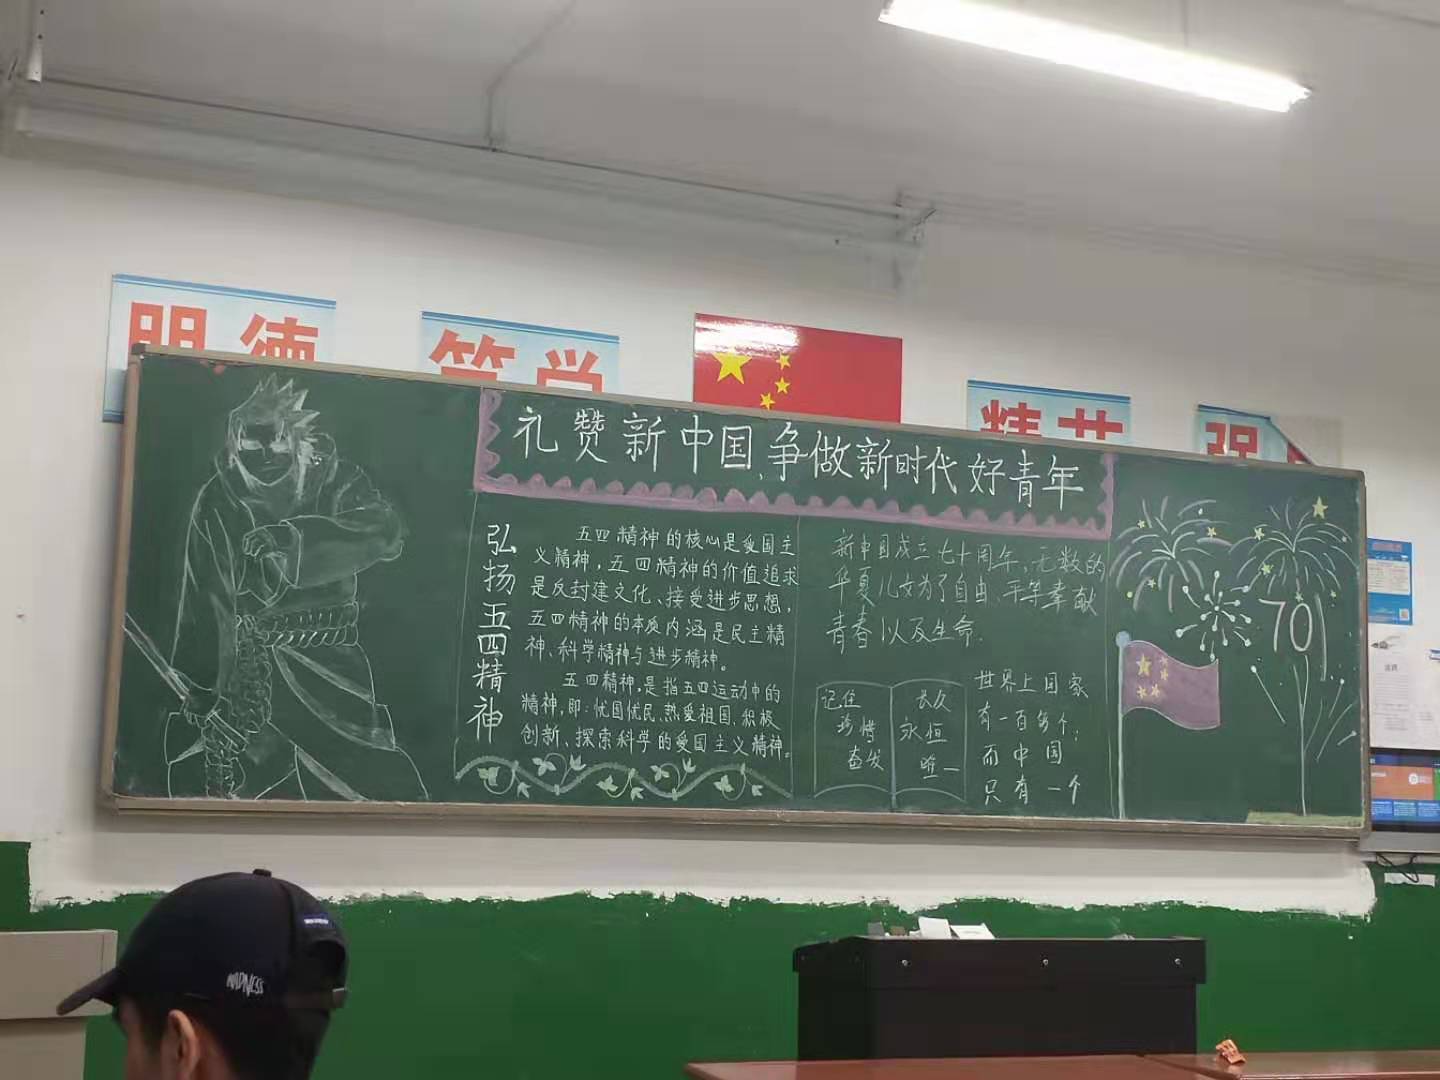 明德
笃学
精艺
强
礼赞新中国、争做新时代好青年
弘扬五四精神
五四精神的核心是爱国主
义精神，五四精神的价值追求
是反封建文化、接受进步思想，
五四精神的本质内涵是民主精
神、科学精神与进步精神。
五四精神，是指五四运动中的
精神，即：忧国忧民、热爱祖国、积极
创新、探索科学的爱国主义精神。
新中国成立七十周年、无数的
华夏儿女为了自由、平等奉献
青春以及生命。
记住
珍惜
奋发
长久
永恒
唯一
世界上国家
有一百多个；
而中国
只有一个
70
MADNESS